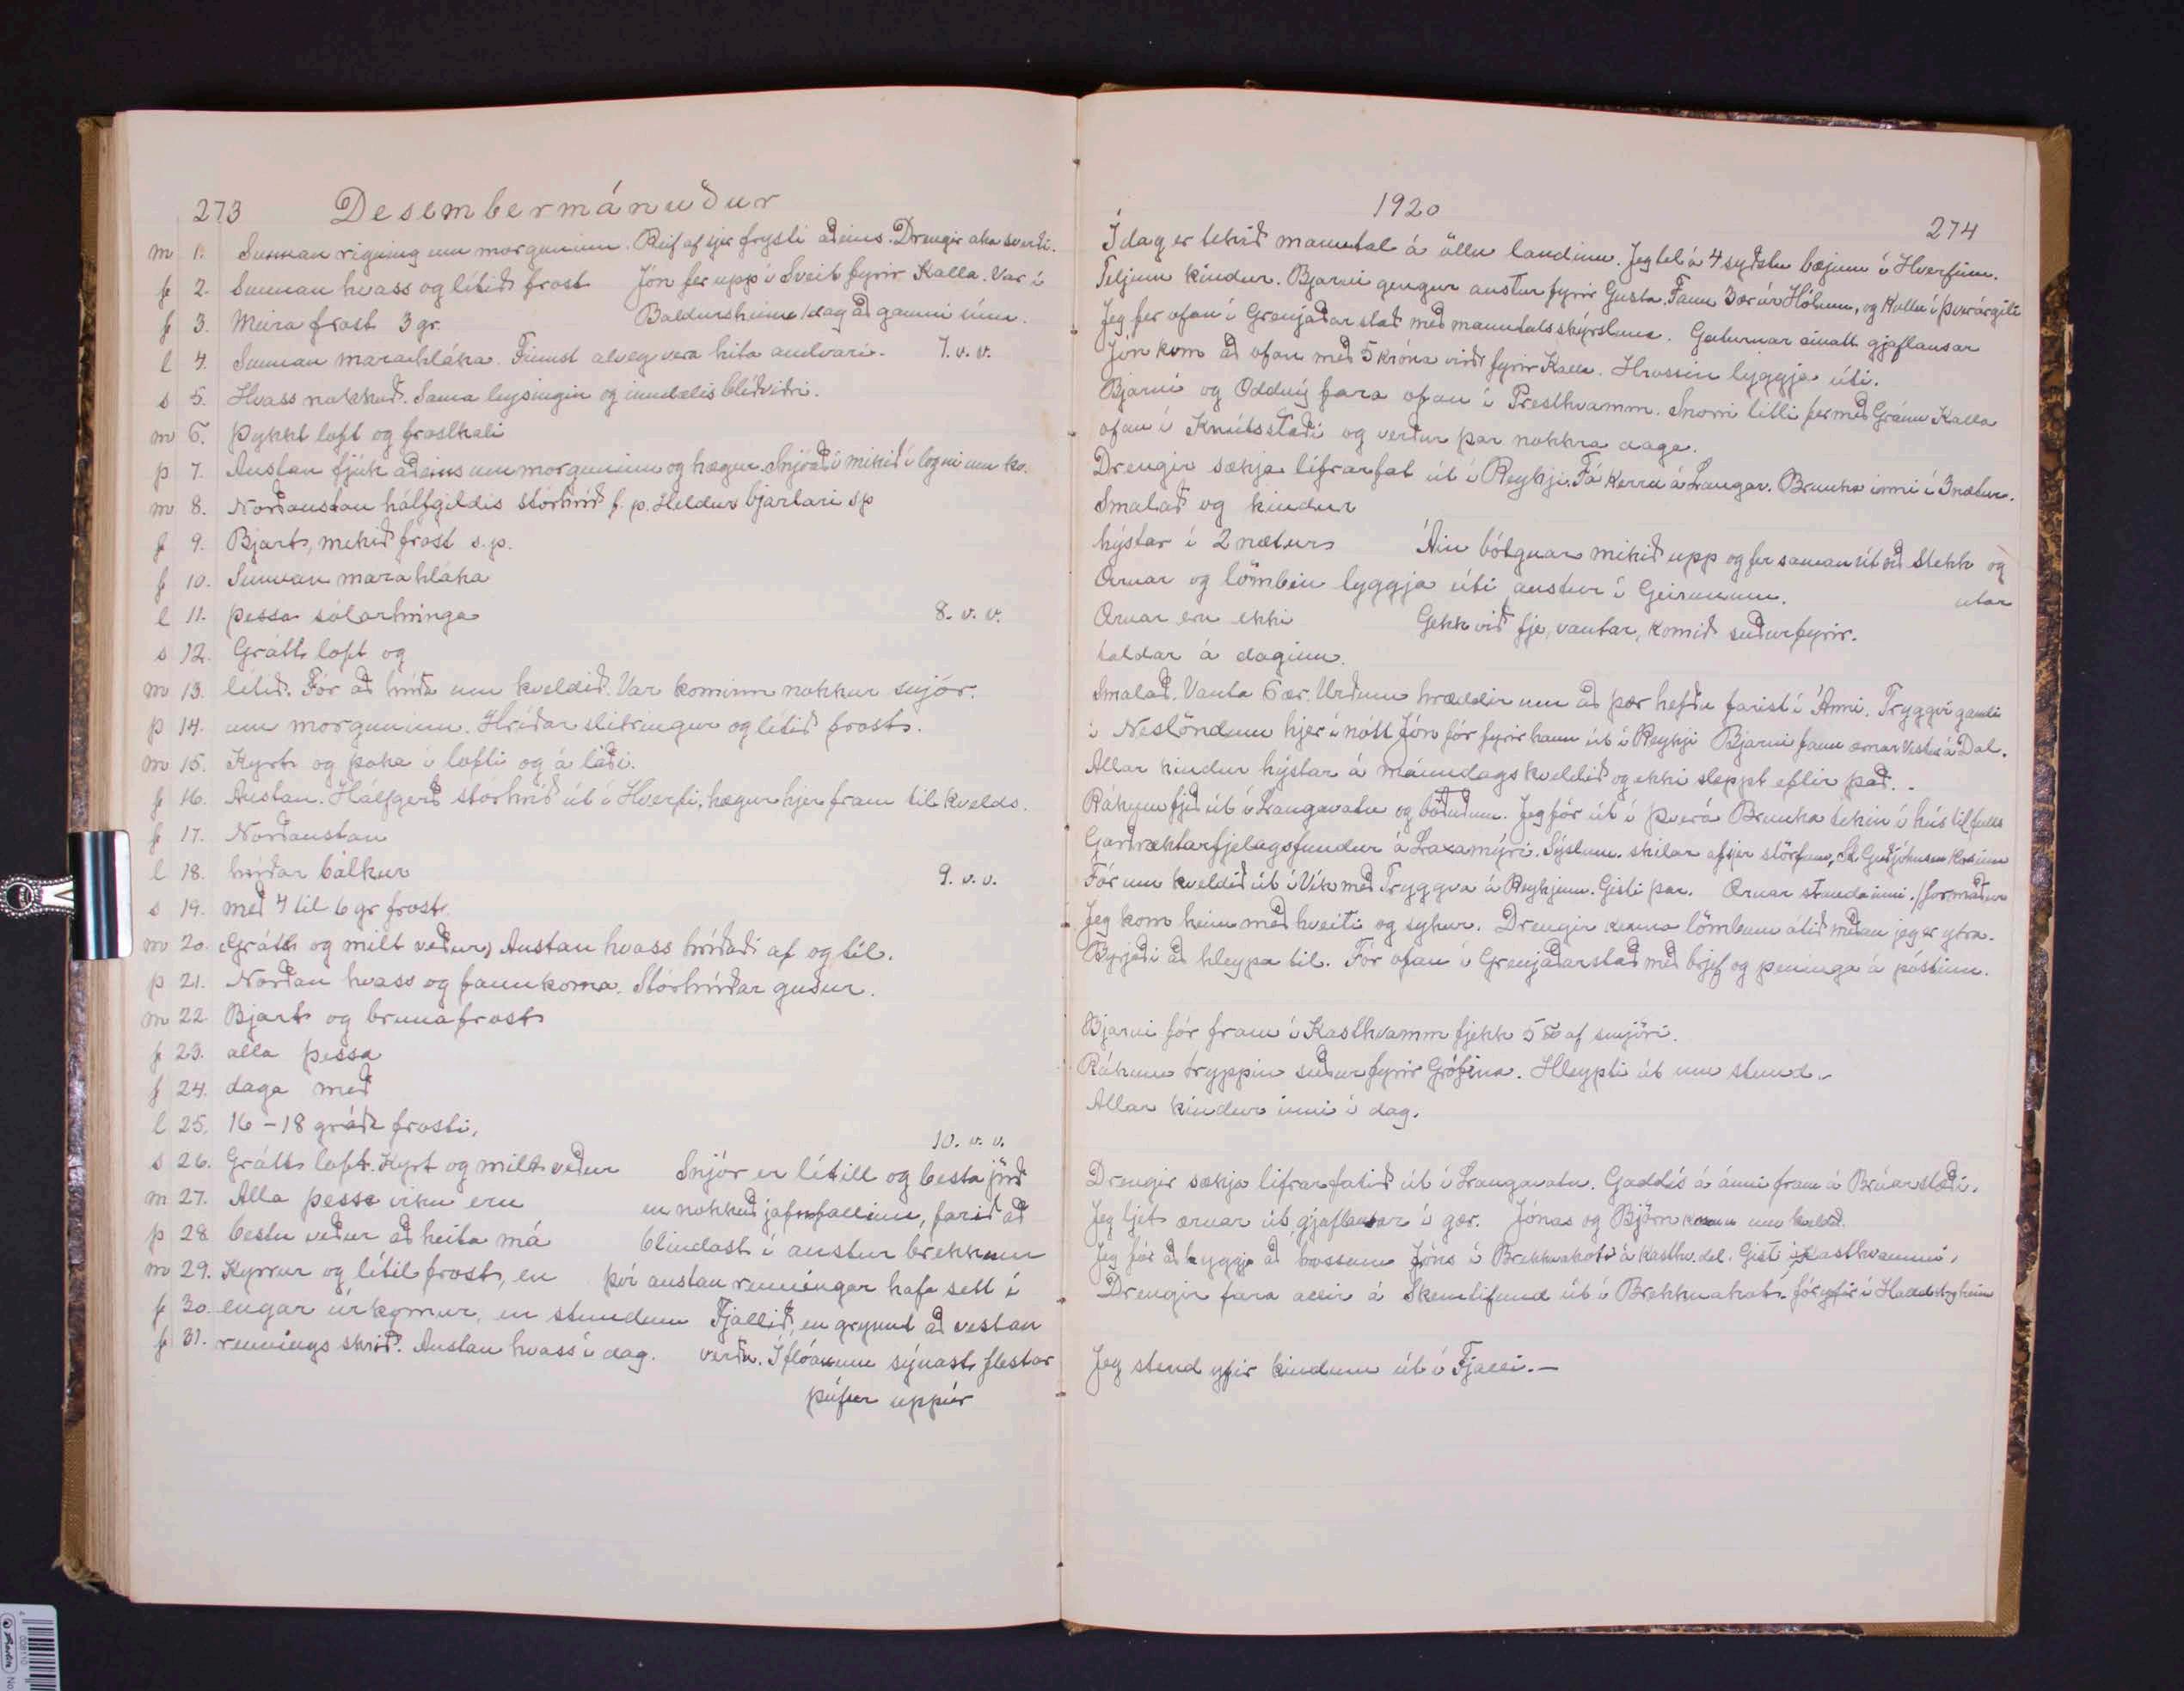 273 Desembermánuður
m 1. Sunnan rigning um morguninn. Reif af sjer frysti aðeins. Drengir aka sverði.
f 2. Sunnan hvass og lítið frost Jón fer upp í Sveit fyrir Kalla. Var í
f 3. Meira frost 3 gr. Baldursheimi 1 dag að gamni sínu.
l 4. Sunnan marahláka. Finnst alveg vera hita andvari. 7. v. v.
s 5. Hvass nokkuð. Sama leysingin og inndælis blíðviðri.
m 6. Þykkt loft og frostkali
þ 7. Austan fjúk aðeins um morguninn og hægur. Snjóaði mikið í logni um kv.
m 8. Norðaustan hálfgildis stórhríð f. p. Heldur bjartari sp
f 9. Bjart, mikið frost s.p.
f 10. Sunnan marahláka
l 11. þessa sólarhringa 8. v. v.
s 12. Grátt loft og
m 13. lítið. Fór að hríða um kveldið. Var kominn nokkur snjór.
þ 14. um morguninn. Hríðar slitringur og lítið frost.
m 15. Kyrt og þoka í lofti og á láði.
f 16. Austan. Hálfgerð stórhríð út í Hverfi, hægur hjer fram til kvelds.
f 17. Norðaustan
l 18. hríðar bálkur 9. v. v.
s 19. með 4 til 6 gr frost.
m 20. (Grátt og milt veður) Austan hvass hríðaði af og til.
þ 21. Norðan hvass og fannkoma. Stórhríðar gusur.
m 22. Bjart og brunafrost
f 23. alla þessa
f 24. daga með
l 25. 16-18 gráðu frosti,
10. v. v.
s 26. Grátt loft. Kyrt og milt veður Snjór er lítill og besta jörð
m 27. Alla þessa viku eru en nokkuð jafnfallinn, farið að
þ 28. bestu veður að heita má blindast í austur brekkum
m 29. Kyrrur og lítil frost, en því austan renningar hafa sett í
f 30. engar úrkomur, en stundum Fjallið, en grynnt að vestan
f 31. rennings skrið. Austan hvass í dag. verðu. Í flóanum sýnast flestar
þúfur uppúr
1920
274
Í dag er tekið manntal á öllu landinu. Jeg tel á 4 syðstu bæjum í Hverfinu.
Teljum kindur. Bjarni gengur austur fyrir Gusta. Fann 3 ær úr Hólum, og Kollu í Þverárgili
Jeg fer ofan í Grenjaðarstað með manntalsskýrsluna. Geturnar einatt gjaflausar
Jón kom að ofan með 5 króna virði fyrir Kalla. Hrossin lyggja úti.
Bjarni og Oddný fara ofan í Presthvamm. Snorri litli fer með Gránu Kalla
ofan í Knútsstaði og verður þar nokkra daga.
Drengir sækja lifrarfat út í Reyki. Fá kerru á Laugar. Brunka inni í 3 nætur.
Smalað og kindur
hýstar í 2 nætur Áin bólgnar mikið upp og fer saman út við Stekk og
utar
Ærnar og lömbin lyggja úti austur í Geirunum.
Ærnar eru ekki Gekk við fje, vantar, komið suðurfyrir.
taldar á daginn.
Smalað. Vanta 6 ær. Urðum hræddir um að þær hefðu farist í Ánni. Tryggvi gamli
í Neslöndum hjer í nótt Jón fór fyrir hann út í Reyki Bjarni fann ærnar vestur á Dal.
Allar kindur hýstar á mánudagskveldið og ekki sleppt eftir það.
Rákum fjeð út í Langavatn og böðuðum. Jeg fór út í Þverá Brunka tekin í hús til fulls
Garðræktarfjelagsfundur á Laxamýri. Sýslum. skilar af sjer störfum, St. Guðjohnsen kosinn
formaður
Fór um kveldið út í Vík með Tryggva á Reykjum. Gisti þar. Ærnar standa inni.
Jeg kom heim með hveiti og sykur. Drengir kenna lömbum átið meðan jeg er ytra.
Byrjaði að hleypa til. Fór ofan í Grenjaðarstað með brjef og peninga á póstinn.
Bjarni fór fram í Kasthvamm fjekk 5 ℔ af smjöri.
Rákum tryppin suðurfyrir Grófina. Hleypti út um stund.
Allar kindur inni í dag.
Drengir sækja lifrarfatið út í Langavatn. Gaddís á ánni fram á Brúarstæði.
Jeg ljet ærnar út gjaflausar í gær. Jónas og Björn komu um kveld.
Jeg fór að hyggja að hrossum Jóns í Brekknakoti á Kasthv.dal. Gisti í Kasthvammi,
Drengir fara allir á Skemtifund út í Brekknakot.
Jeg stend yfir kindum út í Fjalli.